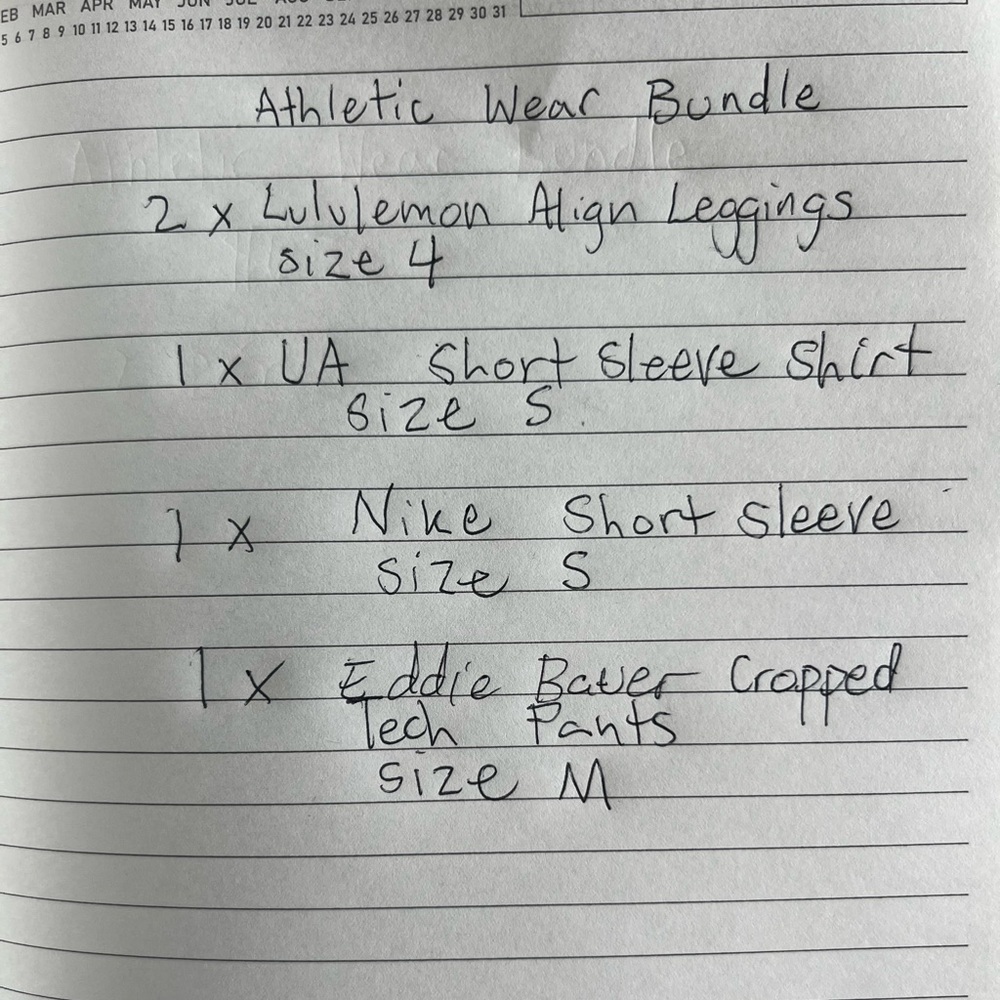 EB MAR APR MAY JUN
5 6 7 8 9 10 11 12 13 14 15 16 17 18 19 20 21 22 23 24 25 26 27 28 29 30 31
Athletic Wear Bundle
2 x Lululemon Align Leggings
size 4
1 x UA Short Sleeve Shirt
size S
1 x Nike Short Sleeve
size S
1 x Eddie Bauer Cropped
Tech Pants
size M